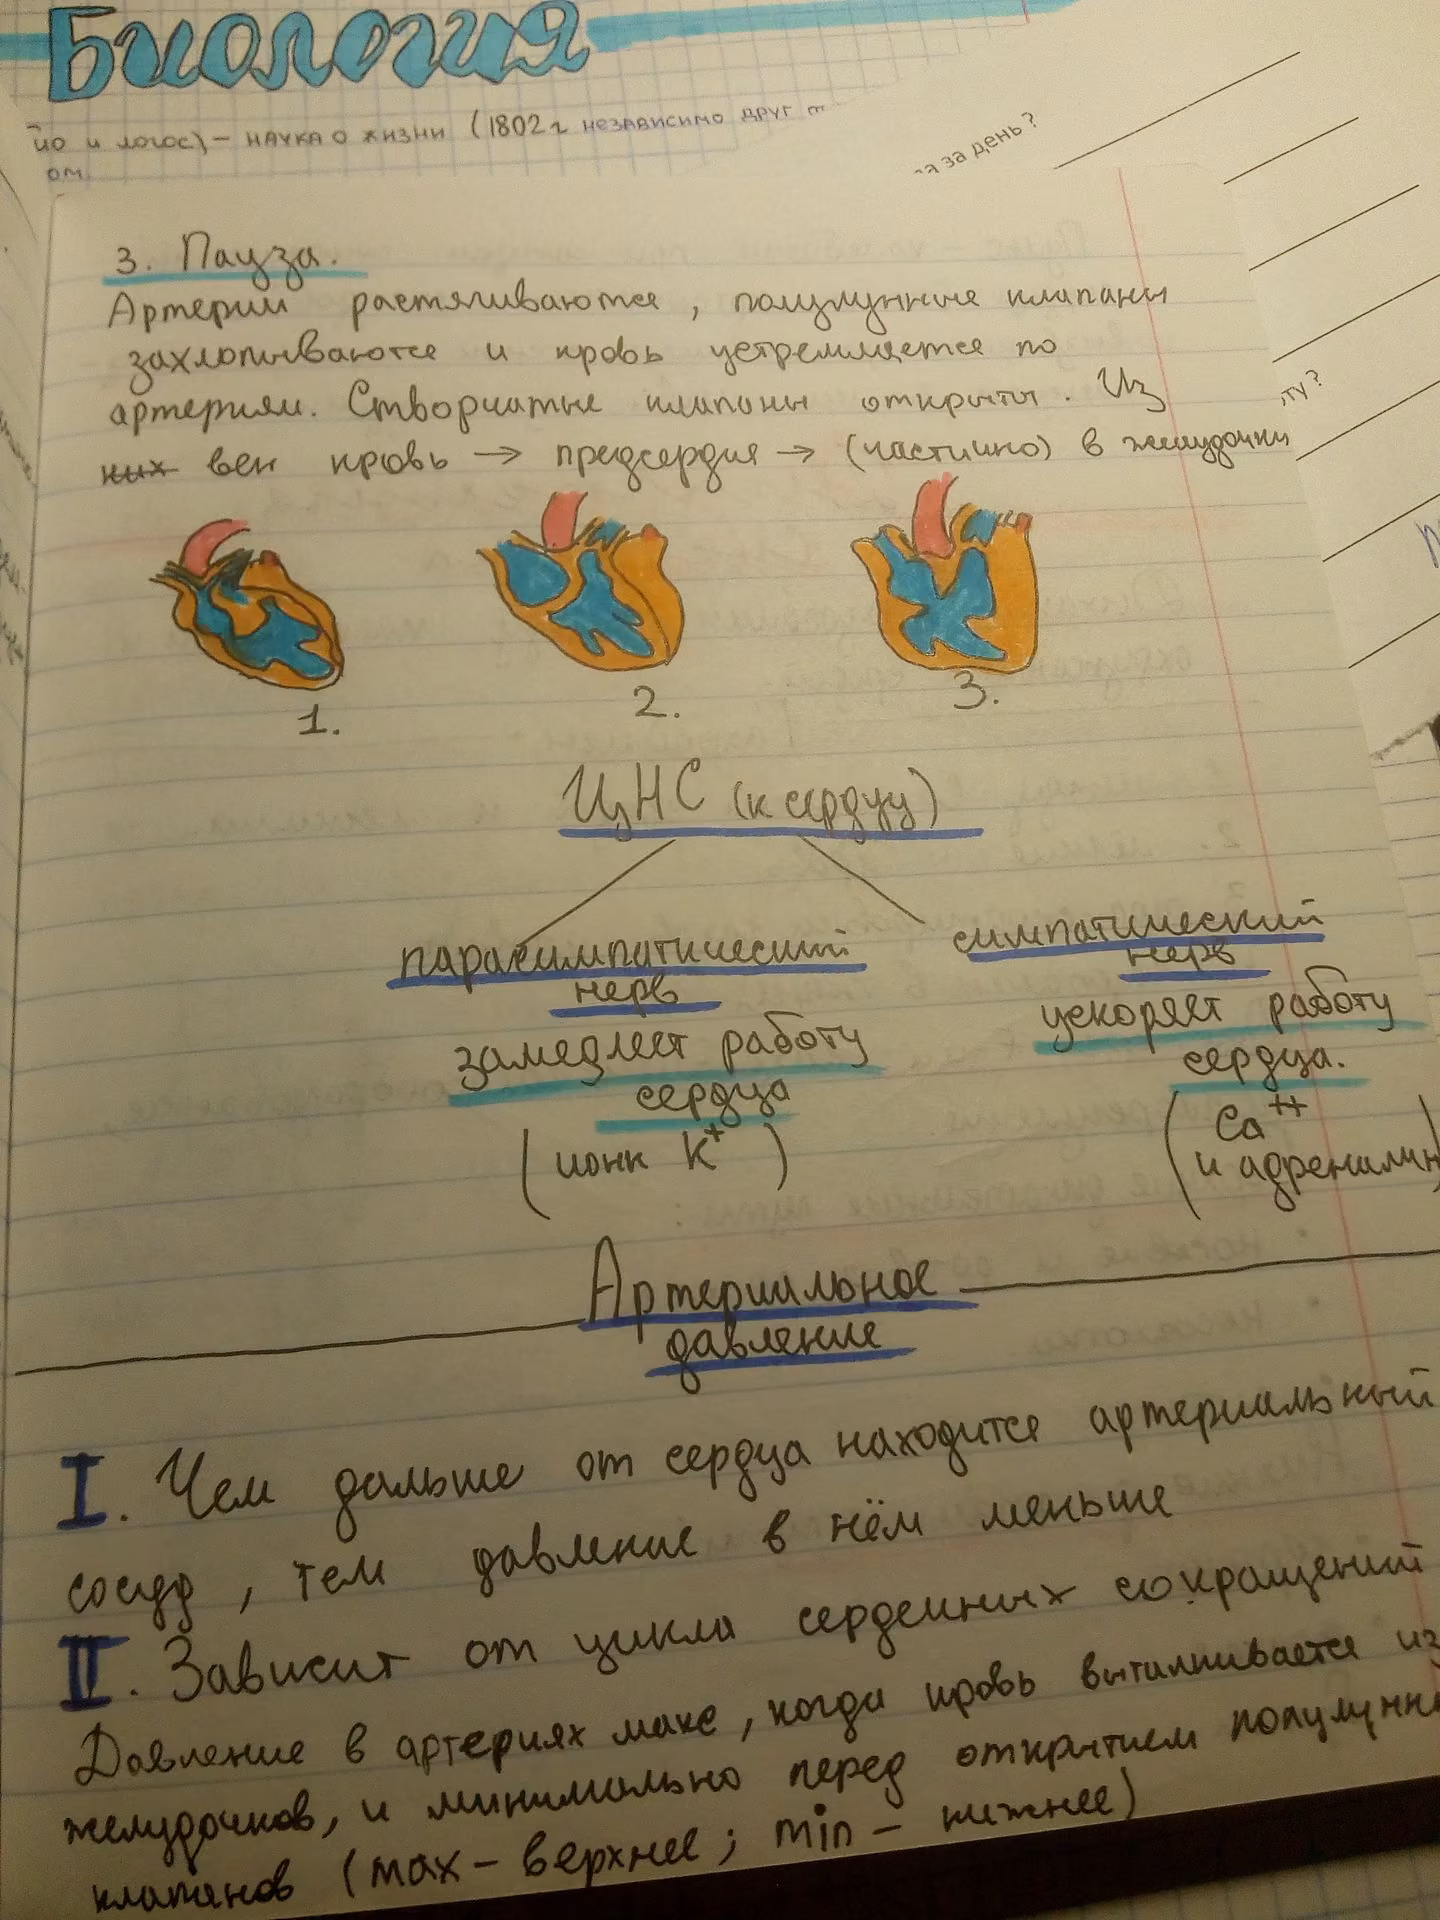 Биология
йо и логос) – наука о жизни (1802 г независимо друг от
ом
а за день?
ту?
3. Пауза.
Артерии растягиваются, полулунные клапаны
захлопываются и кровь устремляется по
артериям. Створчатые клапаны открыты. Из
них вен кровь → предсердия → (частично) в желудочки
1.
2.
3.
ЦНС (к сердцу)
парасимпатический
нерв
замедляет работу
сердца
(ионы K+)
симпатический
нерв
ускоряет работу
сердца.
(Ca++
и адреналин)
Артериальное
давление
I. Чем дальше от сердца находится артериальный
сосуд, тем давление в нём меньше
II. Зависит от цикла сердечных сокращений
Давление в артериях макс, когда кровь выталкивается из
желудочков, и минимально перед открытием полулунн
клапанов (max – верхнее; min – нижнее)